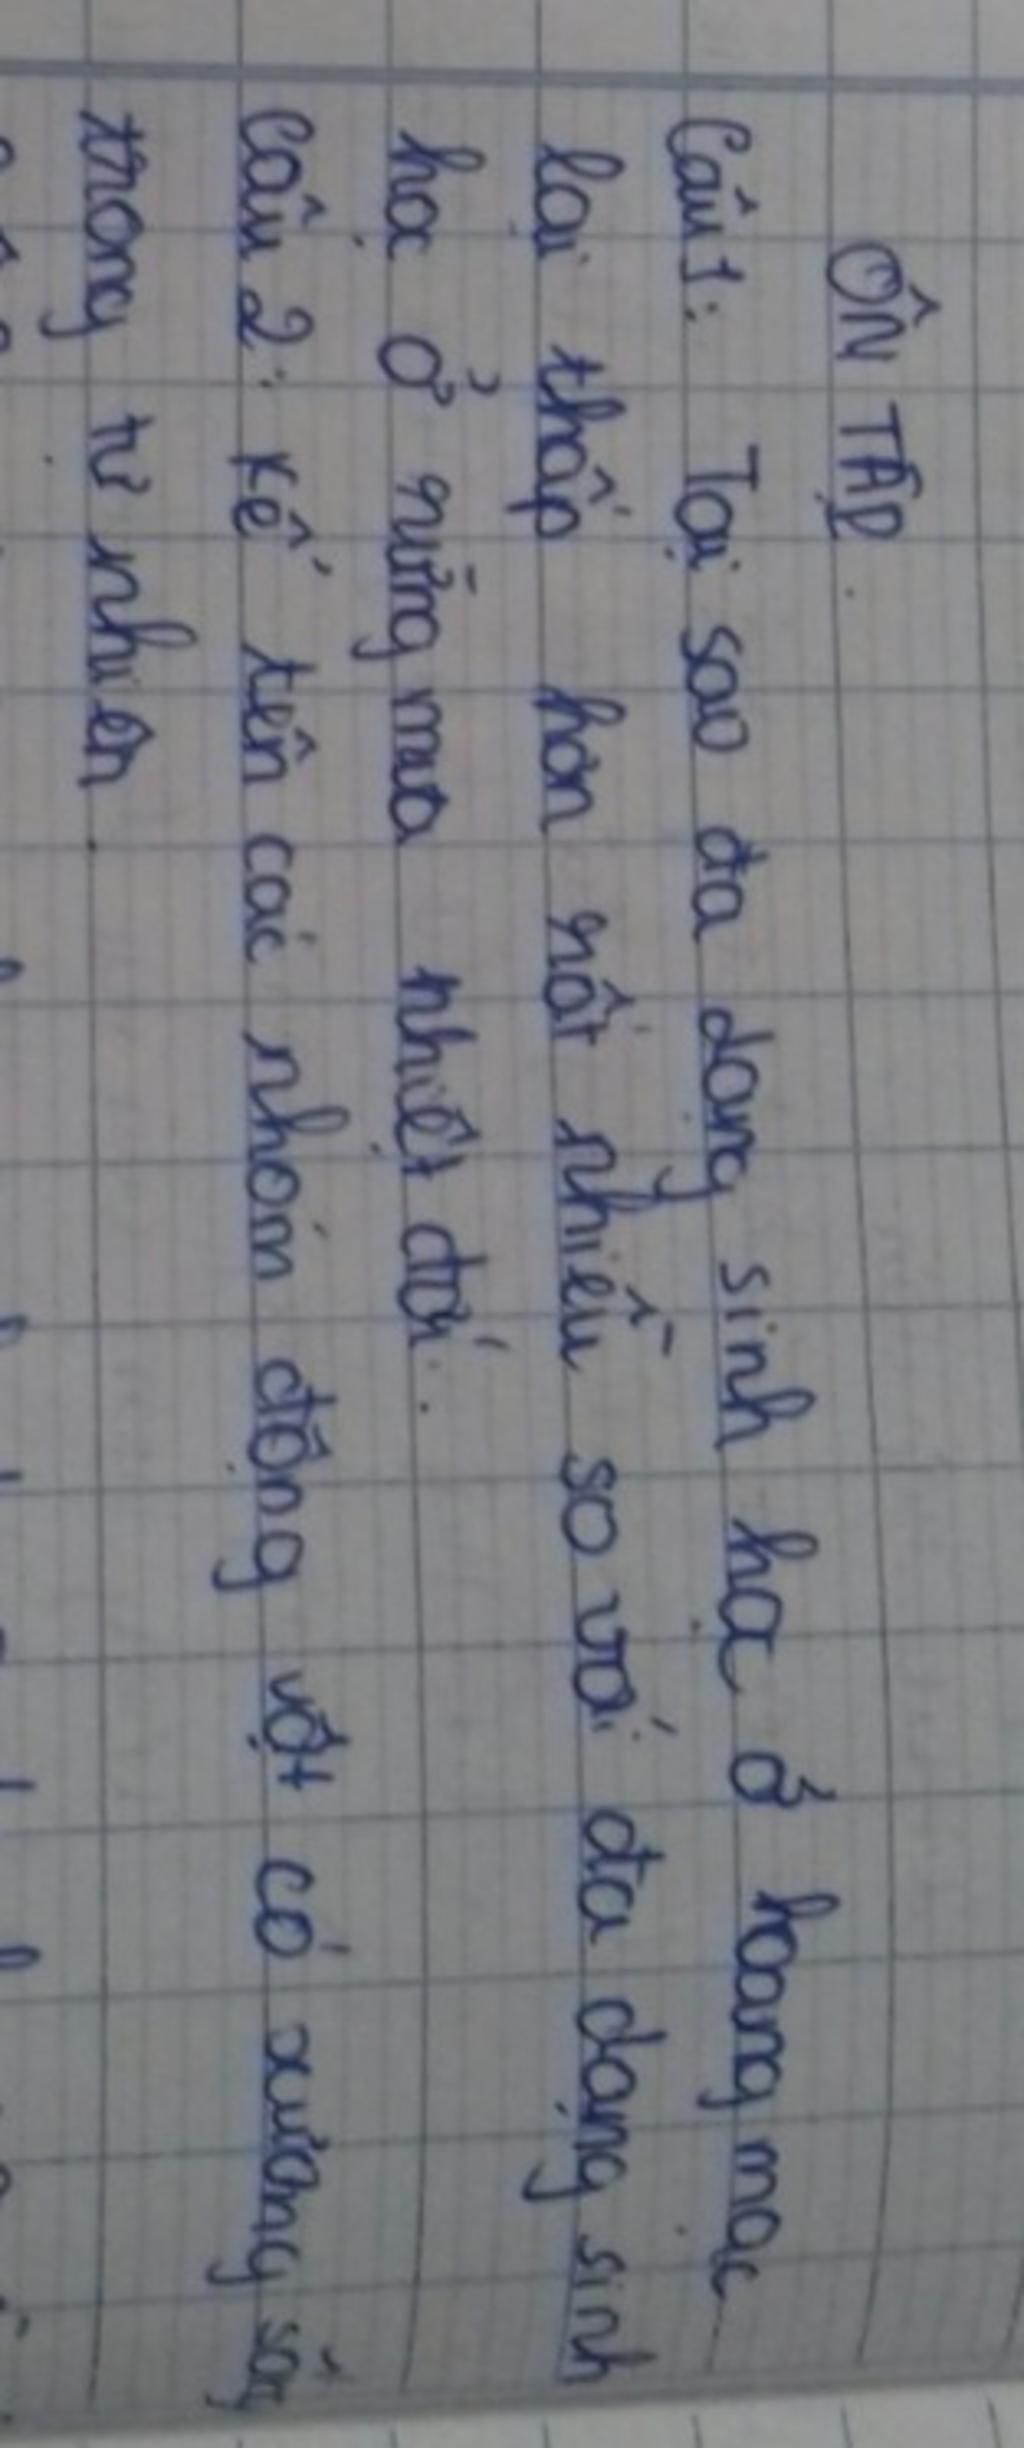 ÔN TẬP.
Câu 1: Tại sao đa dạng sinh học ở hoang mạc
lại thấp hơn rất nhiều so với đa dạng sinh
học ở rừng mưa nhiệt đới.
Câu 2: Kể tên các nhóm động vật có xương sống
trong tự nhiên.